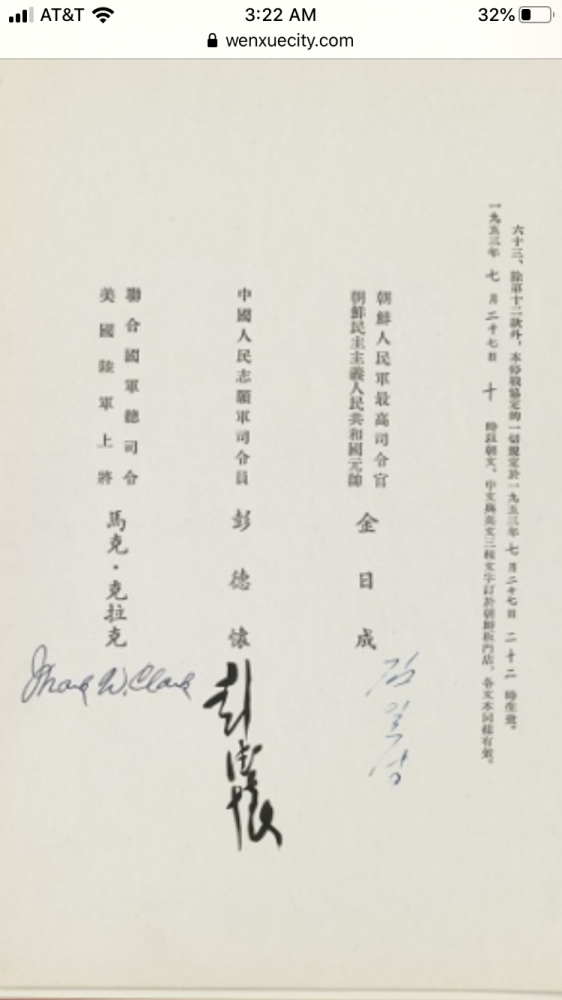 AT&T
3:22 AM
32%
wenxuecity.com
六十三、除第十二款外，本停戰協定的一切規定於一九五三年 七 月二十七日 二十二 時生效。
一九五三年 七 月 二十七日 十 時以朝文、中文與英文三種文字訂於朝鮮板門店，各文本同樣有效。
朝鮮人民軍最高司令官
朝鮮民主主義人民共和國元帥
金日成
김일성
中國人民志願軍司令員
彭德懷
彭德懷
聯合國軍總司令
美國陸軍上將
馬克·克拉克
Mark W. Clark